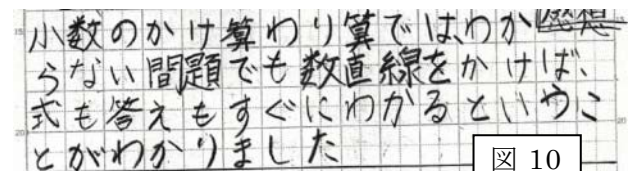 小数のかけ算わり算では、わか 感想
らない間題でも数直線をかけば、
式も答えもすぐにわかるというこ
とがわかりました
図 10